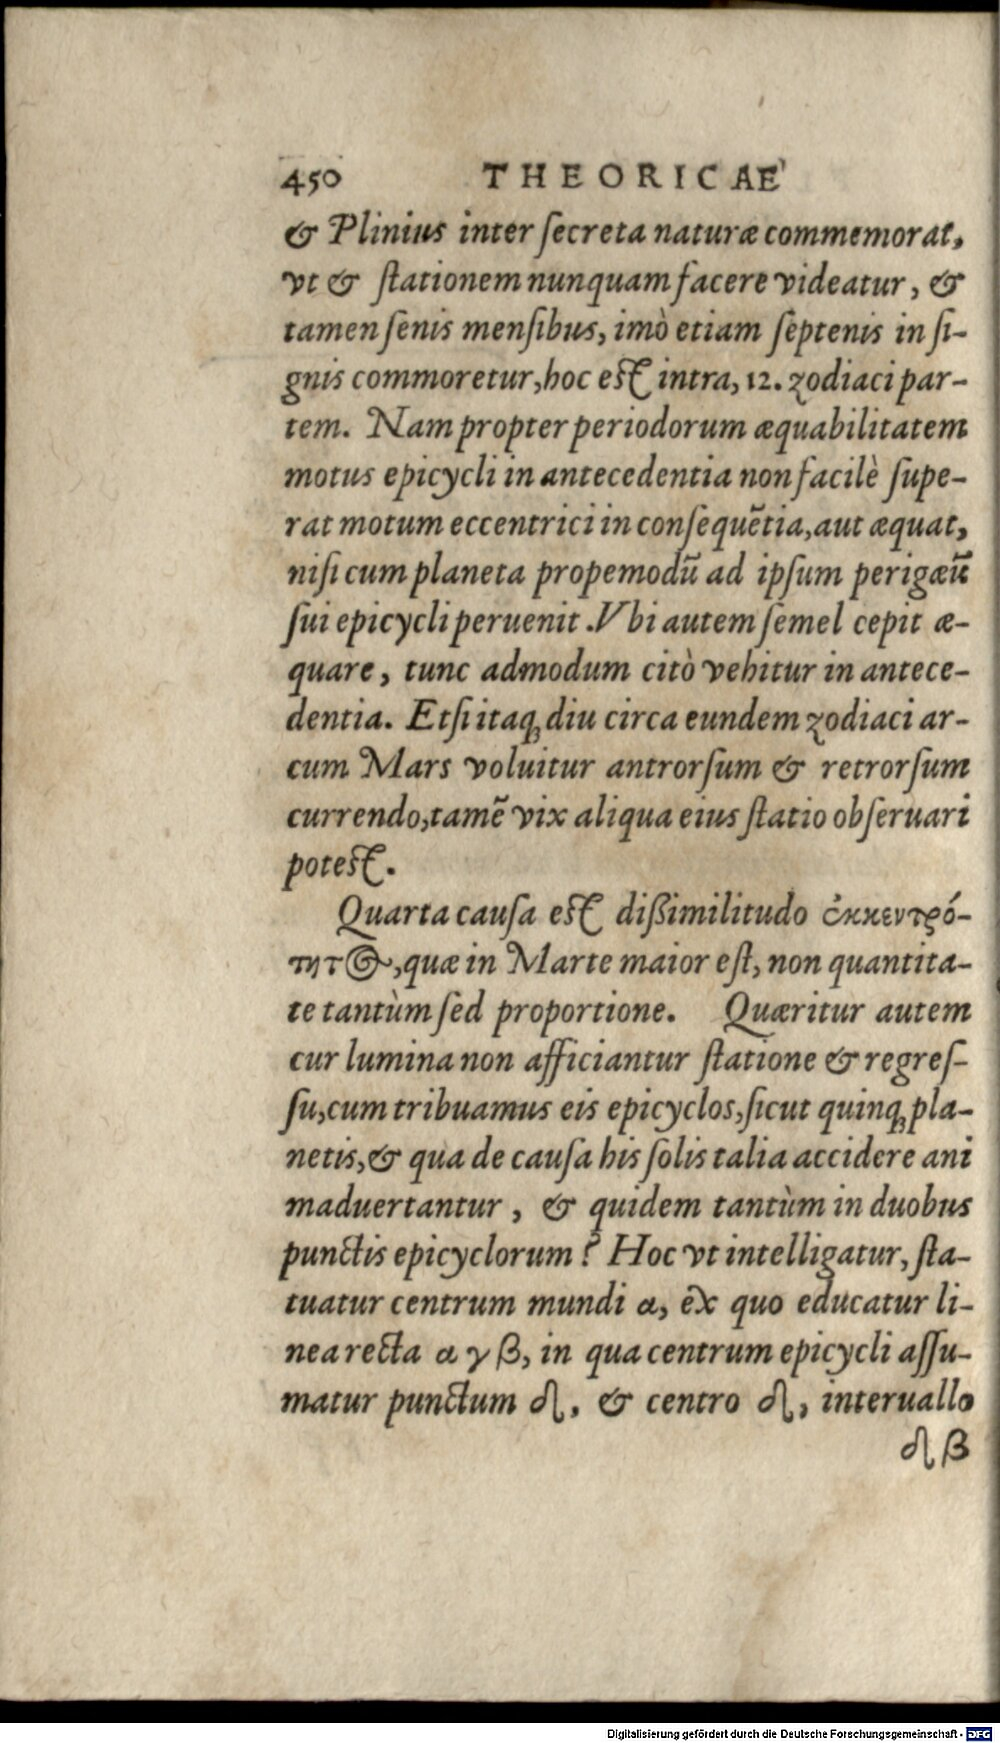 450 THEORICAE
& Plinius inter ſecreta naturæ commemorat,
vt & ſtationem nunquam facere videatur, &
tamen ſenis menſibus, imò etiam ſeptenis in ſi-
gnis commoretur, hoc eſt intra, 12. zodiaci par-
tem. Nam propter periodorum æquabilitatem
motus epicycli in antecedentia non facilè ſupe-
rat motum eccentrici in conſequẽtia, aut æquat,
niſi cum planeta propemodũ ad ipſum perigæũ
ſui epicycli peruenit. Vbi autem ſemel cepit æ-
quare, tunc admodum citò vehitur in antece-
dentia. Etſi itaq; diu circa eundem zodiaci ar-
cum Mars voluitur antrorſum & retrorſum
currendo, tamẽ vix aliqua eius ſtatio obſeruari
poteſt.
Quarta cauſa eſt diſsimilitudo ἐκκεντρό-
τητος, quæ in Marte maior eſt, non quantita-
te tantùm ſed proportione. Quæritur autem
cur lumina non afficiantur ſtatione & regreſ-
ſu, cum tribuamus eis epicyclos, ſicut quinq; pla-
netis, & qua de cauſa his ſolis talia accidere ani
maduertantur, & quidem tantùm in duobus
punctis epicyclorum? Hoc vt intelligatur, ſta-
tuatur centrum mundi α, ex quo educatur li-
nea recta α γ β, in qua centrum epicycli aſſu-
matur punctum δ, & centro δ, interuallo
δ β
Digitalisierung gefördert durch die Deutsche Forschungsgemeinschaft - DFG